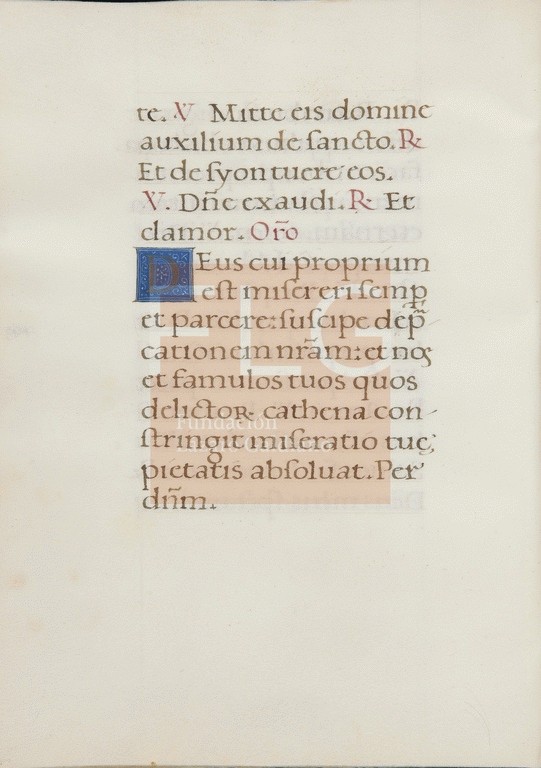 te. V Mitte eis domine
auxilium de sancto. R
Et de syon tuere eos.
V. Dn̄e exaudi. R Et
clamor. Or̄o
DEus cui proprium
est misereri semp̱
et parcere: suscipe dep̄
cationem nr̄am: et nos
et famulos tuos quos
delictoꝝ cathena con-
stringit miseratio tuę
pietatis absoluat. Per
dn̄m.
FLG
Fundación